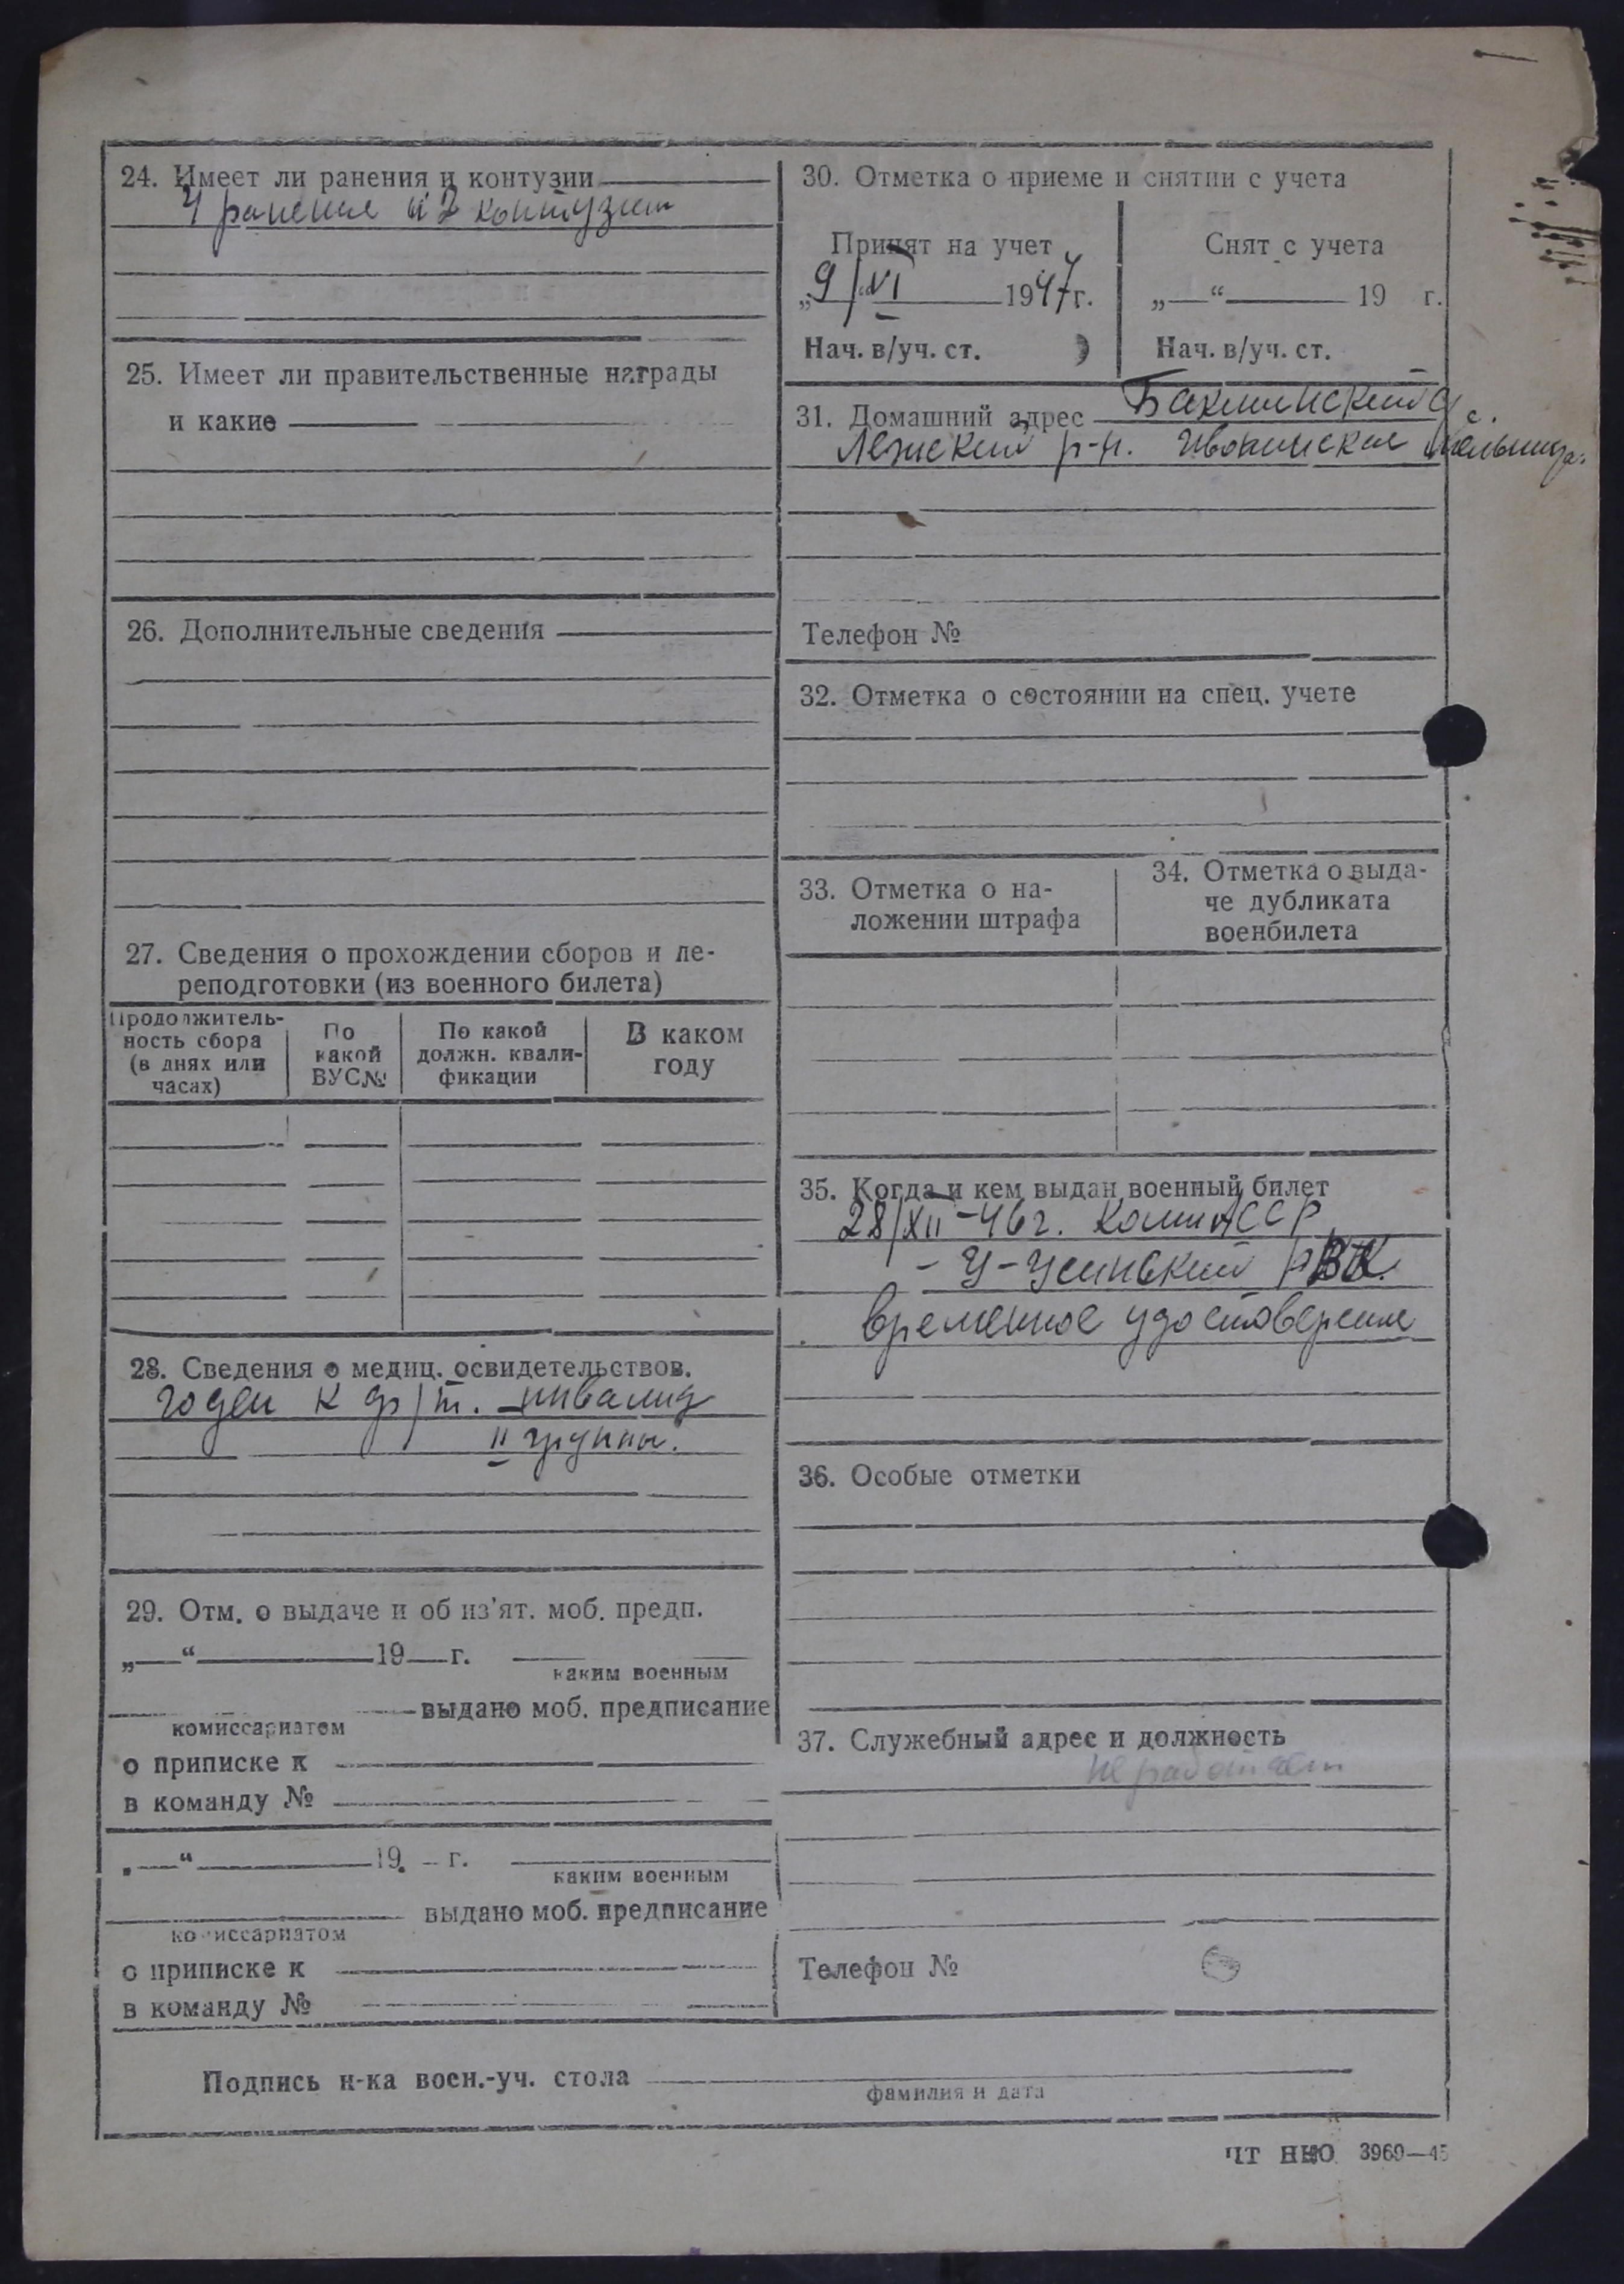 24. Имеет ли ранения и контузии
4 ранение и 2 контузии
25. Имеет ли правительственные награды
и какие
26. Дополнительные сведения
27. Сведения о прохождении сборов и пе-
реподготовки (из военного билета)
Продолжитель-
ность сбора
(в днях или
часах)
По
какой
ВУС№
По какой
должн. квали-
фикации
В каком
году
28. Сведения о медиц. освидетельствов.
годен к ф/т. инвалид
II группы.
29. Отм. о выдаче и об из'ят. моб. предп.
„—“ 19 г.
каким военным
выдано моб. предписание
комиссариатом
о приписке к
в команду №
„—“ 19 г.
каким военным
выдано моб. предписание
комиссариатом
о приписке к
в команду №
30. Отметка о приеме и снятии с учета
Принят на учет
„9“ VI 1947г.
Нач. в/уч. ст.
Снят с учета
„—“ 19 г.
Нач. в/уч. ст.
31. Домашний адрес
р-н. мельница.
Телефон №
32. Отметка о состоянии на спец. учете
33. Отметка о на-
ложении штрафа
34. Отметка о выда-
че дубликата
военбилета
35. Когда и кем выдан военный билет
28/XII-46г. Коми АССР
- У-Усинский РВК.
временное удостоверение
36. Особые отметки
37. Служебный адрес и должность
не работает
Телефон №
Подпись н-ка воен.-уч. стола
фамилия и дата
ЧТ НКО 3969—45